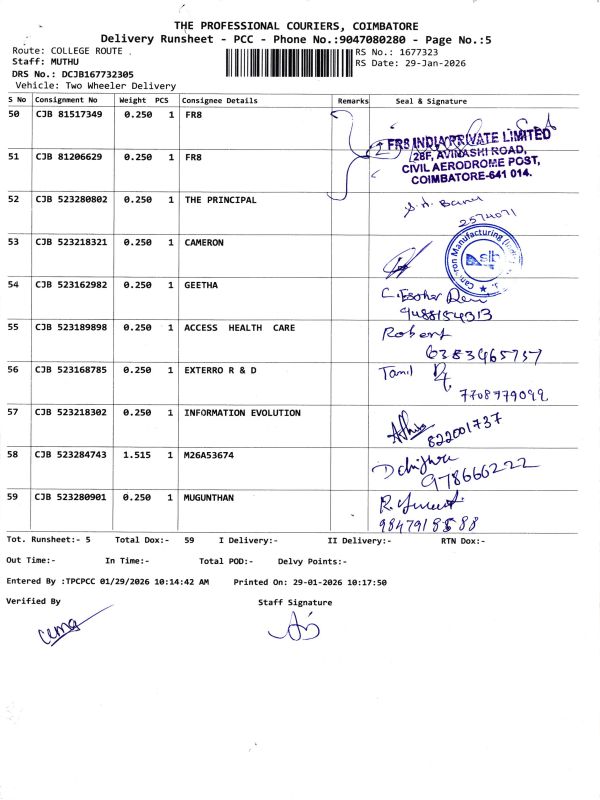 THE PROFESSIONAL COURIERS, COIMBATORE
Delivery Runsheet - PCC - Phone No.:9047080280 - Page No.:5
Route: COLLEGE ROUTE RS No.: 1677323
Staff: MUTHU RS Date: 29-Jan-2026
DRS No.: DCJB167732305
Vehicle: Two Wheeler Delivery
S No Consignment No Weight PCS Consignee Details Remarks Seal & Signature
50 CJB 81517349 0.250 1 FR8
FR8 INDIA PRIVATE LIMITED
28F, AVINASHI ROAD,
51 CJB 81206629 0.250 1 FR8
CIVIL AERODROME POST,
COIMBATORE-641 014.
52 CJB 523280802 0.250 1 THE PRINCIPAL S.H. Banu
2574071
53 CJB 523218321 0.250 1 CAMERON
54 CJB 523162982 0.250 1 GEETHA C. Esther
9488154313
55 CJB 523189898 0.250 1 ACCESS HEALTH CARE Robert
6383465737
56 CJB 523168785 0.250 1 EXTERRO R & D Tamil
7708779099
57 CJB 523218302 0.250 1 INFORMATION EVOLUTION
822001737
58 CJB 523284743 1.515 1 M26A53674
978666222
59 CJB 523280901 0.250 1 MUGUNTHAN
Tot. Runsheet:- 5 Total Dox:- 59 I Delivery:- II Delivery:- RTN Dox:-
Out Time:- In Time:- Total POD:- Delvy Points:-
Entered By :TPCPCC 01/29/2026 10:14:42 AM Printed On: 29-01-2026 10:17:50
Verified By Staff Signature